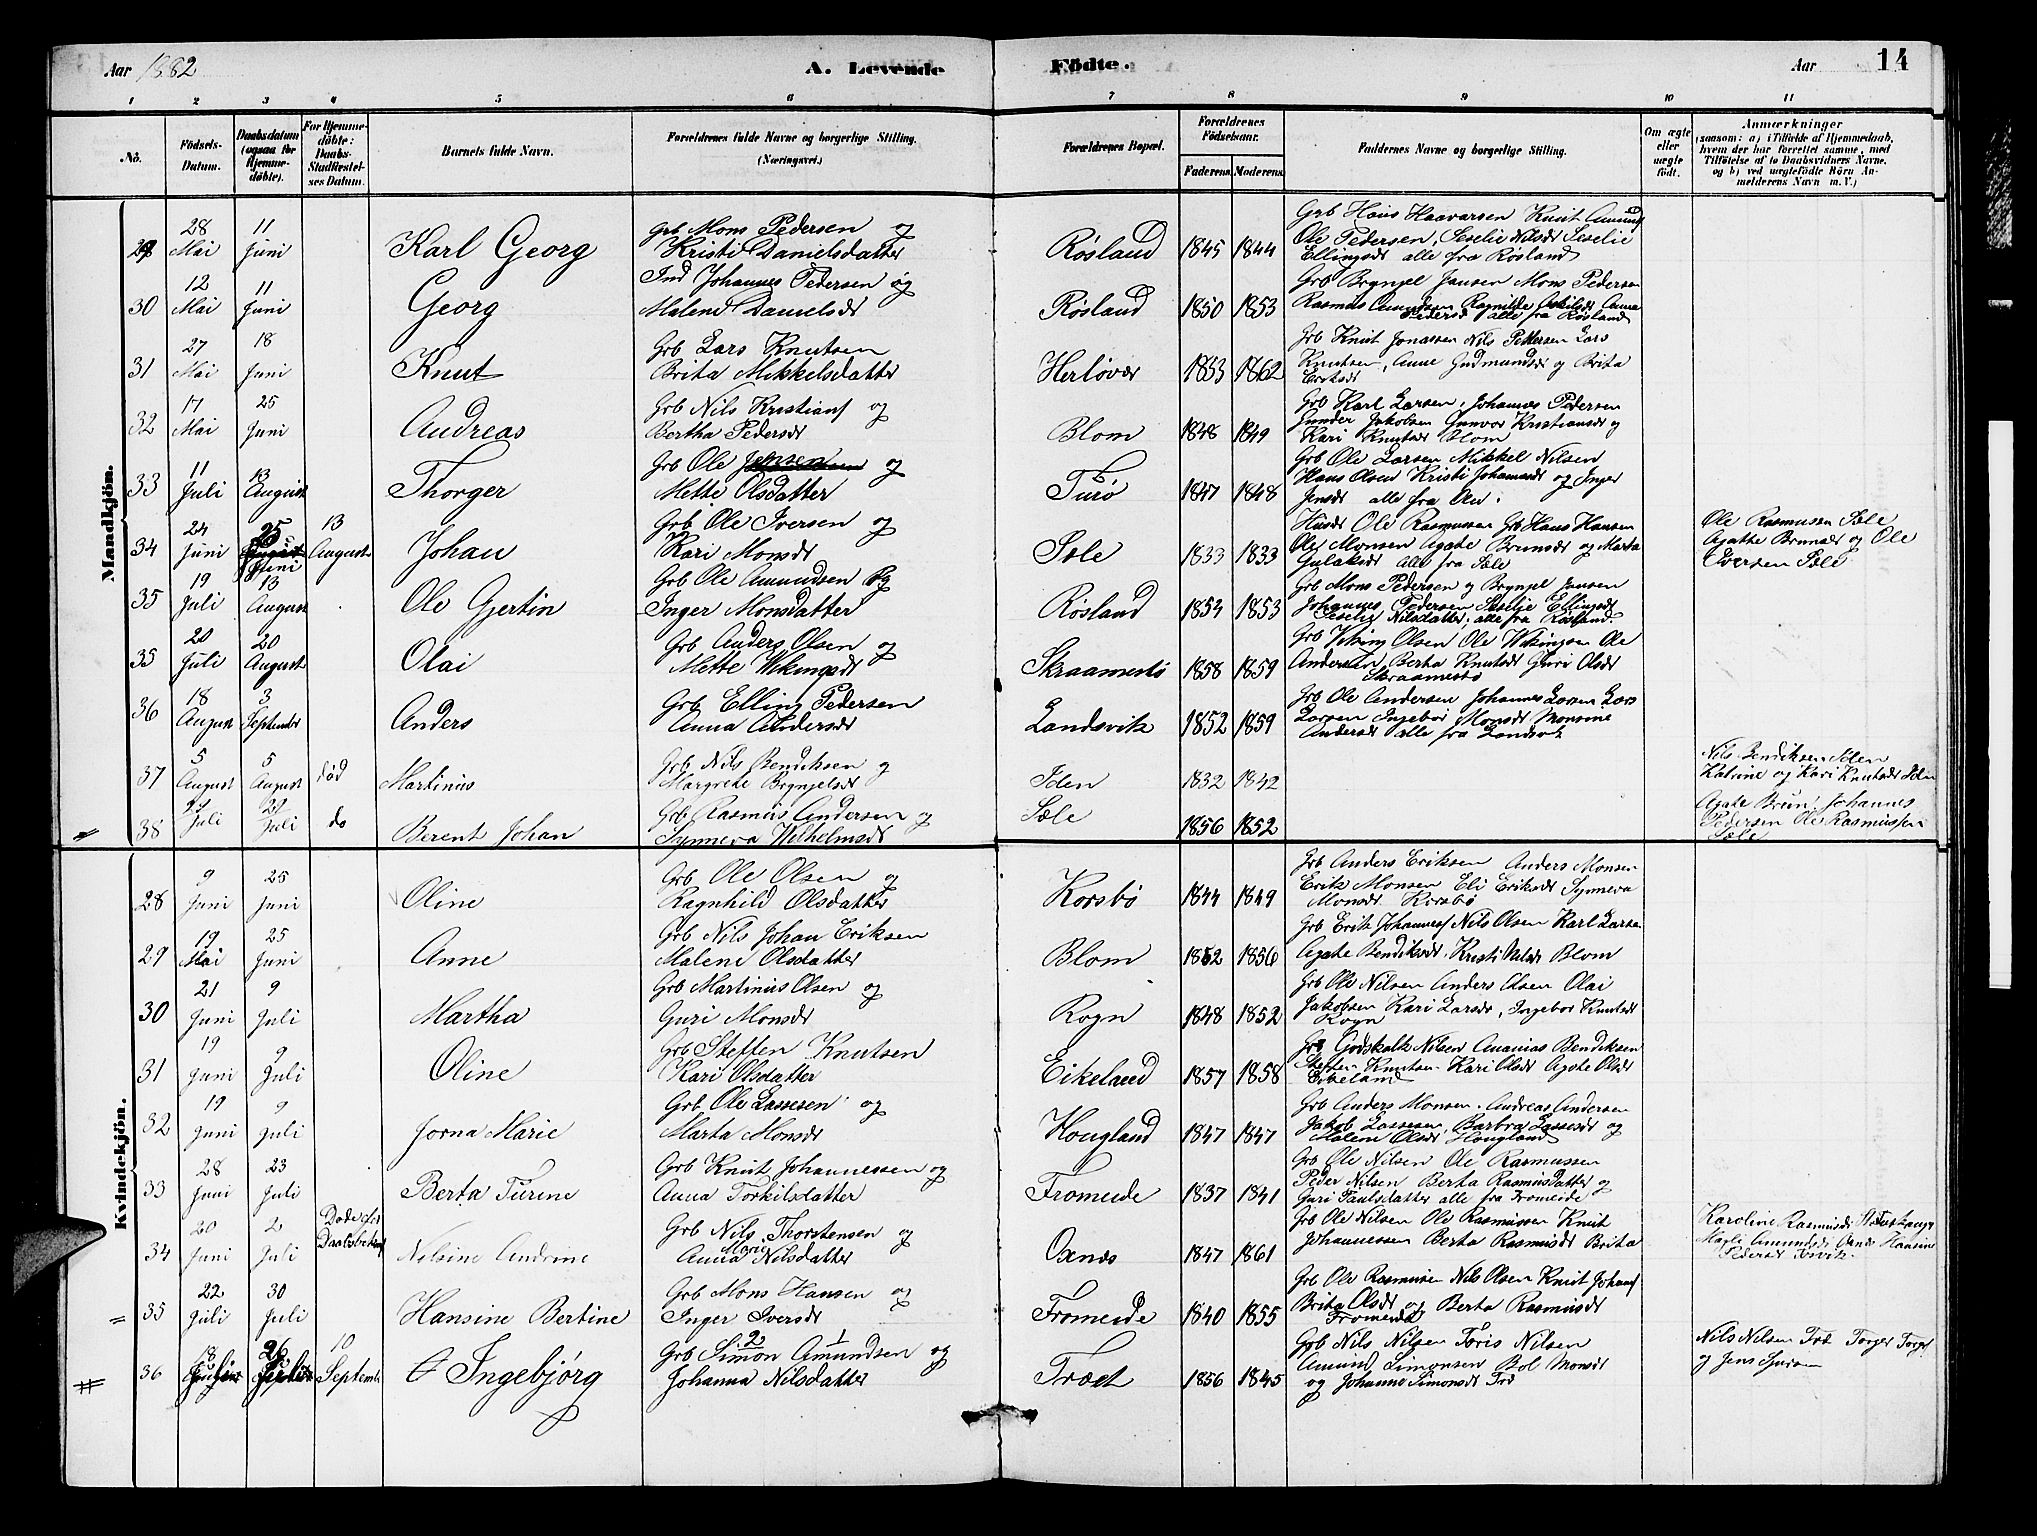 Aar 1882 A. Levende Födte. Aar 14
1 2 3 4 5 6 7 8 9 10 11
No. Födsels-Datum. Daabsdatum (ogsaa for Hjemme-döbte). For Hjemme-döbte: Daabs-Stadfæstel-ses Datum. Barnets fulde Navn. Forældrenes fulde Navne og borgerlige Stilling. (Næringsvei.) Forældrenes Bopæl. Forældrenes Födselsaar. Faderens. Moderens. Faddernes Navne og borgerlige Stilling. Om ægte eller uægte födt. Anmærkninger (saasom: a) i Tilfælde af Hjemmedaab, hvem der har forrettet samme, med Tilföielse af to Daabsvidners Navne, og b) ved uægtefödte Börn Anmelderens Navn m. V.)
Mandkjön.
29 28 Mai 11 Juni Karl Georg Grb Mons Pedersen og
Kristi Danielsdatter Røsland 1845 1844 Grb Hans Haavarsen Knut Amunds
Ole Pedersen, Seselie Nilsdt Seselie
Ellingsdt alle fra Røsland
30 12 Mai 11 Juni Georg Ind Johannes Pedersen og
Malene Danielsdt Røsland 1850 1853 Grb Brynjel Jansen Mons Pedersen
Rasmus Amundsen Ragnilde Anna
Pedersdt alle fra Røsland
31 27 Mai 18 Juni Knut Grb Lars Knutsen
Brita Mikkelsdatter Herløvær 1833 1862 Grb Knut Jonassen Nils Pettersen Lars
Knutsen, Anne Gudmundsdt og Brita
Eriksdt
32 17 Mai 25 Juni Andreas Grb Nils Kristians og
Bertha Pedersdt Blom 1848 1849 Grb Karl Larsen, Johannes Pedersen
Gunder Jakobsen Gunvor Kristiansdt og
Kari Knutsdt Blom
33 11 Juli 13 August Thorger Grb Ole Jensen og
Mette Olsdatter Turø 1847 1848 Grb Ole Larsen Mikkel Nilsen
Hans Olsen Kristi Johannesdt og Inger
Jensdt alle fra
34 24 Juni 25 Juni 13 August Johan Grb Ole Iversen og
Kari Monsdt Sæle 1833 1833 Husdt Ole Rasmussen Grb Hans Hansen
Ole Monsen Agate Brunsdt og Marta
alle fra Sæle
Ole Rasmussen Sæle
Agathe Brunsdt og Ole
Iversen Sæle
35 19 Juli 13 August Ole Gjertin Grb Ole Amundsen og
Inger Monsdatter Røsland 1854 1853 Grb Mons Pedersen og Brynjel Jansen
Johannes Pedersen Seselie Ellingsdt
Seselie Nilsdatter, alle fra Røsland
35 20 Juli 20 August Olai Grb Anders Olsen og
Mette Wikingsdt Skraamestø 1858 1859 Grb Viking Olsen Ole Wikingsen Ole
Andersen, Berta Knutsdt Guri Olsdt
Skraamestø
36 18 August 3 September Anders Grb Elling Pedersen
Anna Andersdt Landsvik 1852 1859 Grb Ole Andersen Johannes Larsen Lars
Larsen Ingebor Monsdt Monsine
Andersdt alle fra Landsvik
37 5 August 5 August død Martinus Grb Nils Bendiksen og
Margrete Brynjelsdt Iden 1832 1842 Nils Bendiksen Iden
Katrine og Kari Knutsdt Iden
38 29 Juli 29 Juli do Berent Johan Grb Rasmus Andersen og
Synneva Wilhelmsdt Sæle 1856 1852 Agate Brun, Johannes
Pedersen Ole Rasmussen
Sæle
Kvindekjön.
28 9 Juni 25 Juni Oline Grb Ole Olsen og
Ragnhild Olsdatter Korsbø 1844 1849 Grb Anders Eriksen Anders Monsen
Erik Monsen Eli Eriksdt Synneva
Monsdt Korsbø
29 19 Mai 25 Juni Anne Grb Nils Johan Eriksen
Malene Olsdatter Blom 1852 1856 Grb Erik Johannes Nils Olsen Karl Larsen
Agate Bendiksdt, Kristi Nilsdt Blom
30 21 Juni 9 Juli Martha Grb Martinus Olsen og
Guri Monsdt Rogn 1848 1852 Grb Ole Nilsen Anders Olsen Olai
Jakobsen Kari Larsdt, Ingebor Knutsdt
Rogn
31 19 Juni 9 Juli Oline Grb Steffen Knutsen
Kari Olsdatter Eikeland 1857 1858 Grb Godskalk Nilsen Ananias Bendiksen
Steffen Knutsen Kari Olsdt Agate Olsdt
Eikeland
32 19 Juni 9 Juli Jorna Marie Grb Ole Lassesen og
Marta Monsdt Hougland 1847 1847 Grb Anders Monsen, Andreas Andersen
Jakob Lassesen, Barbra Lassesdt og
Malene Olsdt Hougland
33 28 Juni 23 Juli Berta Turine Grb Knut Johannessen og
Anna Torkilsdatter Fromeide 1837 1841 Grb Ole Nilsen Ole Rasmussen
Peder Nilsen Berta Rasmusdatter og
Guri Paulsdatter alle fra Fromeide
34 20 Juni 2 Juli Døde før Nilsine Andrine Grb Nils Thorstensen og
Anna Marie Nilsdatter Oxnæs 1847 1861 Grb Ole Nilsen Ole Rasmussen Knut
Johannessen Berta Rasmusdt Brita
Karoline Rasmusdt
Amundsdt Oxnæs Hansine
Pedersdt
35 22 Juli 30 Juli Hansine Bertine Grb Mons Hansen og
Inger Iversdt Fromeide 1840 1855 Grb Ole Rasmussen Nils Olsen Knut Johans
Brita Olsdt og Berta Rasmusdt
Fromeide
36 18 26 10 September Ingebjørg Grb Simon Amundsen og
Johanna Nilsdatter Træt 1856 1845 Grb Nils Nilsen Toris Nilsen
Amund Simonsen Bol Monsdt
og Johanne Simonsdt Træ
Nils Nilsen Træ Torger Torgers
og Jens